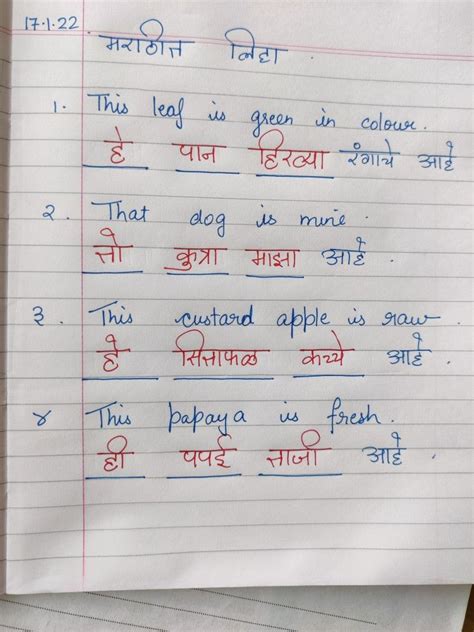 17.1.22
मराठीत लिहा .
१. This leaf is green in colour.
हे पान हिरव्या रंगाचे आहे
२. That dog is mine.
तो कुत्रा माझा आहे .
३. This custard apple is raw.
हे सित्ताफळ कच्चे आहे.
४ This papaya is fresh.
ही पपई ताजी आहे .